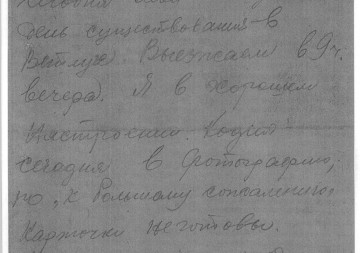 день существования в
Ветлуге. Выезжаем в 9 ч.
вечера. Я в хорошем
настроении. Ходил
сегодня в фотографию,
но, к большому сожалению,
карточки не готовы.